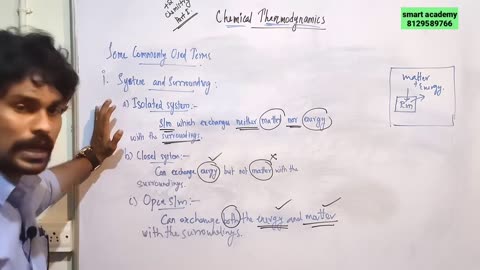 the
Chemistry
Part I
Chemical Thermodynamics
smart academy
8129589766
Some Commonly Used Terms
i. System and Surrounding:
a) Isolated system:-
S/m which exchanges neither matter nor energy
with the surroundings.
b) Closed system:-
Can exchange energy but not matter with the
surroundings.
c) Open S/m:-
Can exchange both the energy and matter
with the surroundings.
matter
+ Energy.
S/m